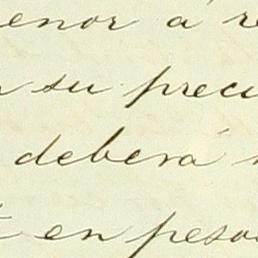 enor á re
su preci
deberá
en peso